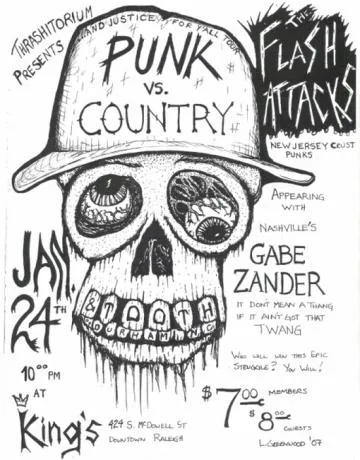 THRASHITORIUM
PRESENTS
"AND JUSTICE FOR Y'ALL TOUR"
PUNK
VS.
COUNTRY
THE
FLASH
ATTACKS
NEW JERSEY CRUST
PUNKS
APPEARING
WITH
NASHVILLE'S
GABE
ZANDER
IT DON'T MEAN A THANG
IF IT AIN'T GOT THAT
TWANG
WHO WILL WIN THIS EPIC
STRUGGLE? YOU WILL!
JAN.
24TH
& TOOTH
DURHAM, NC
10:00 PM
AT
King's
424 S. McDOWELL ST
DOWNTOWN RALEIGH
$7.00 MEMBERS
$8.00 GUESTS
L. GREENWOOD '07